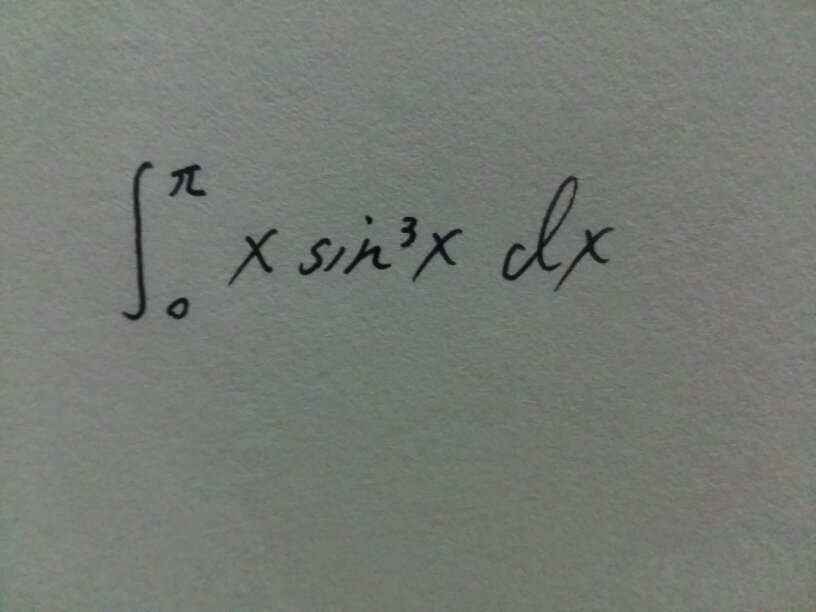 ∫₀^π x sin³x dx